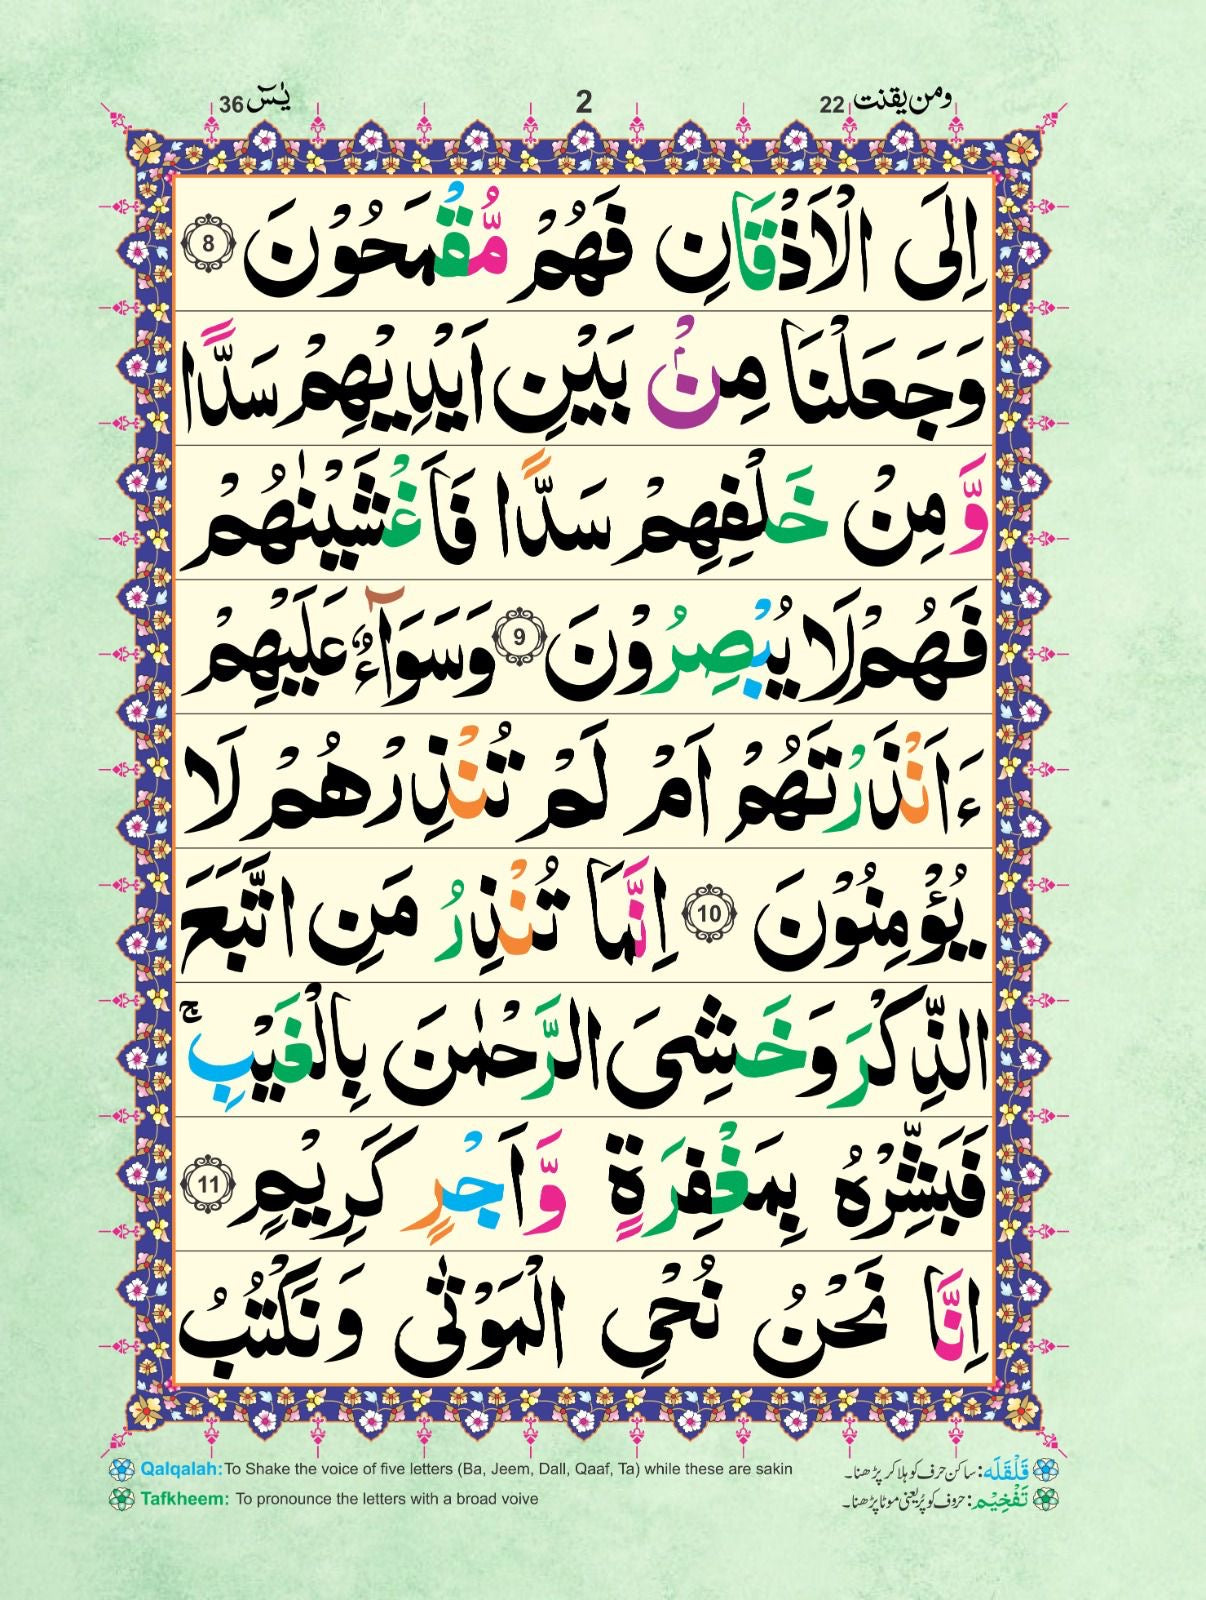 ومن یقنت 22
2
یٰسٓ 36
اِلَی الْاَذْقَانِ فَهُمْ مُّقْمَحُوْنَ 8
وَجَعَلْنَا مِنْۢ بَیْنِ اَیْدِیْهِمْ سَدًّا
وَّمِنْ خَلْفِهِمْ سَدًّا فَاَغْشَیْنٰهُمْ
فَهُمْ لَا یُبْصِرُوْنَ 9 وَسَوَآءٌ عَلَیْهِمْ
ءَاَنْذَرْتَهُمْ اَمْ لَمْ تُنْذِرْهُمْ لَا
یُؤْمِنُوْنَ 10 اِنَّمَا تُنْذِرُ مَنِ اتَّبَعَ
الذِّكْرَ وَخَشِیَ الرَّحْمٰنَ بِالْغَیْبِ ۚ
فَبَشِّرْهُ بِمَغْفِرَةٍ وَّاَجْرٍ كَرِیْمٍ 11
اِنَّا نَحْنُ نُحْیِ الْمَوْتٰی وَنَكْتُبُ
Qalqalah: To Shake the voice of five letters (Ba, Jeem, Dall, Qaaf, Ta) while these are sakin
قَلْقَلَه: ساکن حرف کو ہلا کر پڑھنا۔
Tafkheem: To pronounce the letters with a broad voive
تَفْخِیْم: حروف کو پُر یعنی موٹا پڑھنا۔